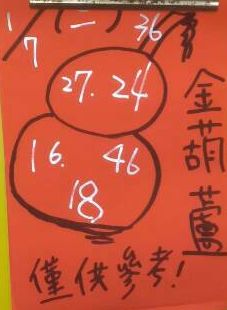 1/7 (一) 36
27. 24
16. 46
18
金葫蘆
僅供參考!